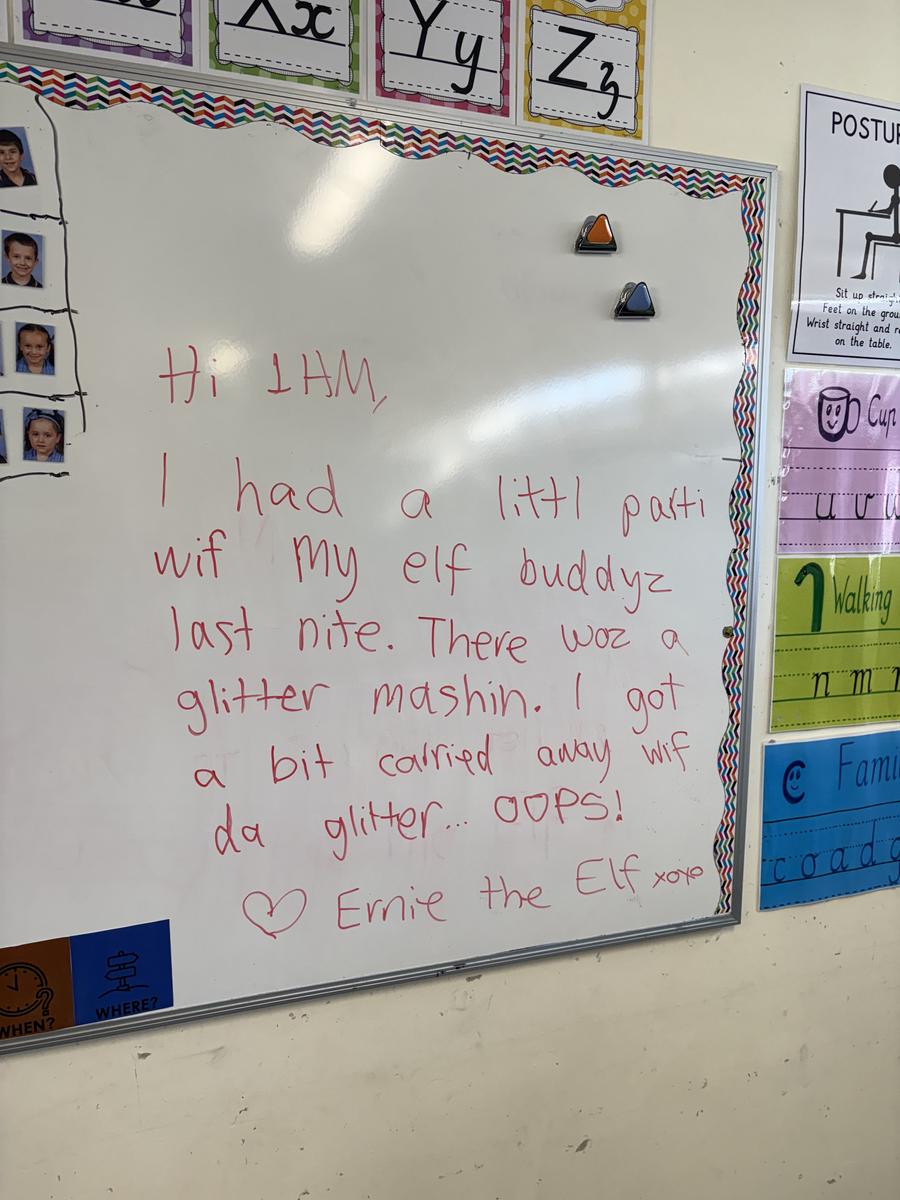 Xx
Yy
Zz
POSTUR
Sit up straigh
Feet on the grou
Wrist straight and r
on the table.
Hi 1HM,
I had a littl parti
wif my elf buddyz
last nite. There woz a
glitter mashin. I got
a bit carried away wif
da glitter... OOPS!
♡ Ernie the Elf xoxo
Cup
u v w
Walking
n m r
Fami
c o a d g
WHEN?
WHERE?